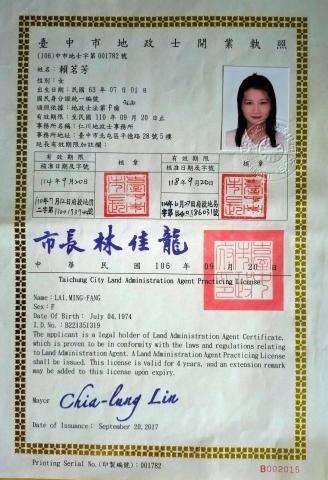 臺中市地政士開業執照
(106)中市地士字第001782號
姓名：賴茗芳
性別：女
出生日期：民國 63年 07月 01日
國民身分證統一編號
有效期限：至民國 110年 09月 20日止
事務所名稱：仁川地政士事務所
事務所地址：臺中市北屯區平德路28號5樓
延長有效期限如註欄：
有效期限 核章 有效期限 核章
核准日期及字號 核准日期及字號
114年9月20日 118年9月20日
市長 林佳龍
中華民國 106 年 09 月 20 日
Taichung City Land Administration Agent Practicing License
Name：LAI,MING-FANG
Sex：F
Date Of Birth： July 04,1974
I.D.No.：B221351319
The applicant is a legal holder of Land Administration Agent Certificate,
which is proven to be in conformity with the laws and regulations relating
to Land Administration Agent. A Land Administration Agent Practicing License
shall be issued. This license is valid for 4 years, and an extension remark
may be added to this license upon expiry.
Mayor Chia-lung Lin
Date of Issuance： September 20,2017
Printing Serial No.(印製編號)：001782
B002015